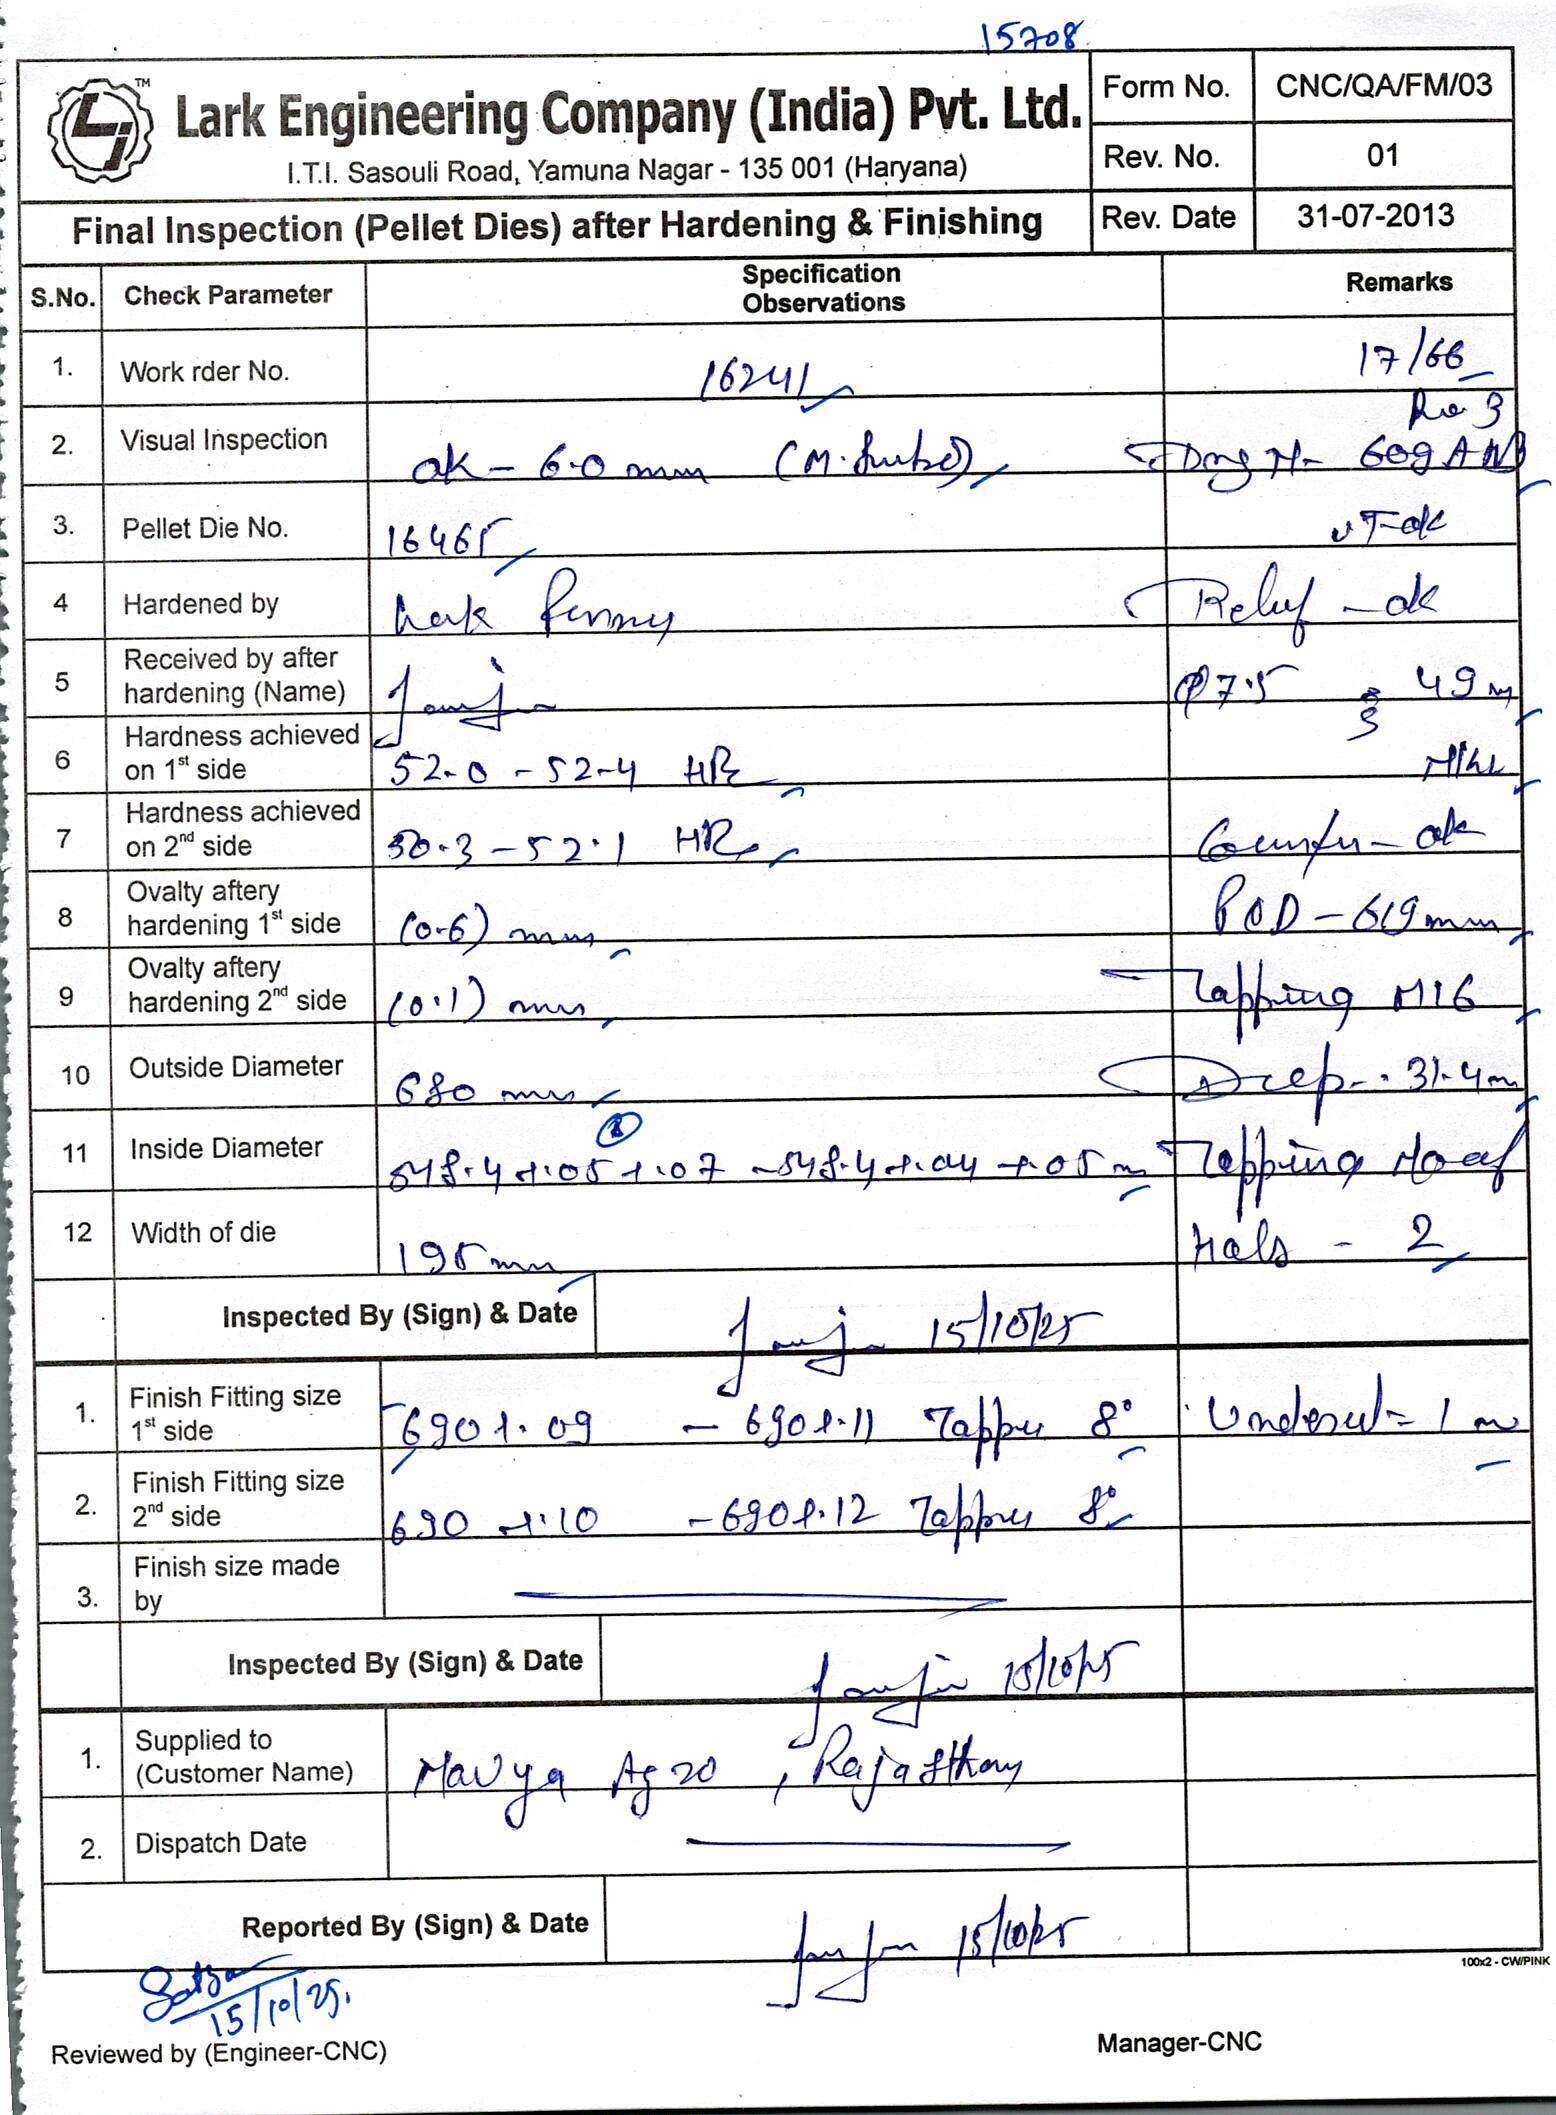 15708
LJ TM
Lark Engineering Company (India) Pvt. Ltd.
I.T.I. Sasouli Road, Yamuna Nagar - 135 001 (Haryana)
Form No. CNC/QA/FM/03
Rev. No. 01
Final Inspection (Pellet Dies) after Hardening & Finishing
Rev. Date 31-07-2013
S.No. Check Parameter Specification Observations Remarks
1. Work rder No. 16241 17/66
2. Visual Inspection ok - 6.0 mm 609 AN
3. Pellet Die No. 16465 UT-ok
4 Hardened by Relief - ok
5 Received by after hardening (Name) φ7.5 49 m
6 Hardness achieved on 1st side 52.0 - 52.4 HRc
7 Hardness achieved on 2nd side 50.3 - 52.1 HRc - ok
8 Ovalty aftery hardening 1st side (0.6) mm POD - 619 mm
9 Ovalty aftery hardening 2nd side (0.1) mm Tapping M16
10 Outside Diameter 680 mm Deep - 31.4 m
11 Inside Diameter 548.4 +.05 +.07 - 548.4 +.04 +.05 m Tapping No of
12 Width of die 195 mm Hols - 2
Inspected By (Sign) & Date 15/10/25
1. Finish Fitting size 1st side 690 +.09 - 690 +.11 Tapper 8° Undercut = 1 m
2. Finish Fitting size 2nd side 690 +.10 - 690 +.12 Tapper 8°
3. Finish size made by
Inspected By (Sign) & Date 15/10/25
1. Supplied to (Customer Name) Mavya Agro, Rajasthan
2. Dispatch Date
Reported By (Sign) & Date 15/10/25
100x2 - CW/PINK
15/10/25.
Reviewed by (Engineer-CNC)
Manager-CNC